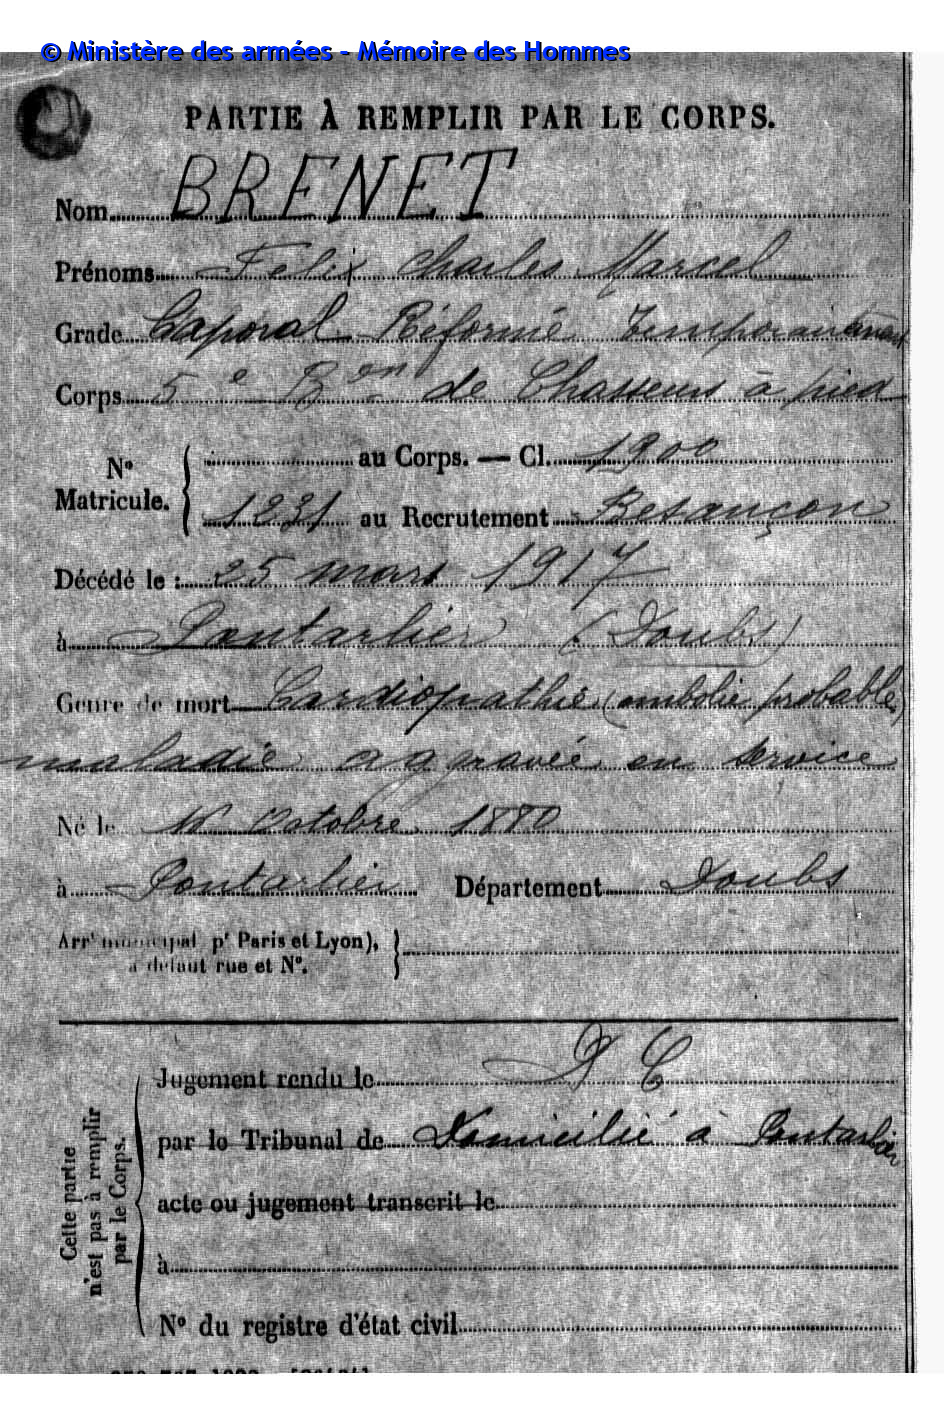 © Ministère des armées - Mémoire des Hommes
PARTIE À REMPLIR PAR LE CORPS.
Nom BRENET
Prénoms Felix Charles Marcel
Grade Caporal Réformé Temporairement
Corps 5e Bon de Chasseurs à pied
No Matricule. { au Corps. — Cl. 1900
1231 au Recrutement Besançon
Décédé le : 25 mars 1917
à Pontarlier (Doubs)
Genre de mort Cardiopathie (embolie probable)
maladie aggravée en service
Né le Octobre 1880
à Pontarlier Département Doubs
Arrt municipal pr Paris et Lyon),
à défaut rue et No.
Cette partie n'est pas à remplir par le Corps.
Jugement rendu le
par le Tribunal de Domicilié à Pontarlier
acte ou jugement transcrit le
à
No du registre d'état civil